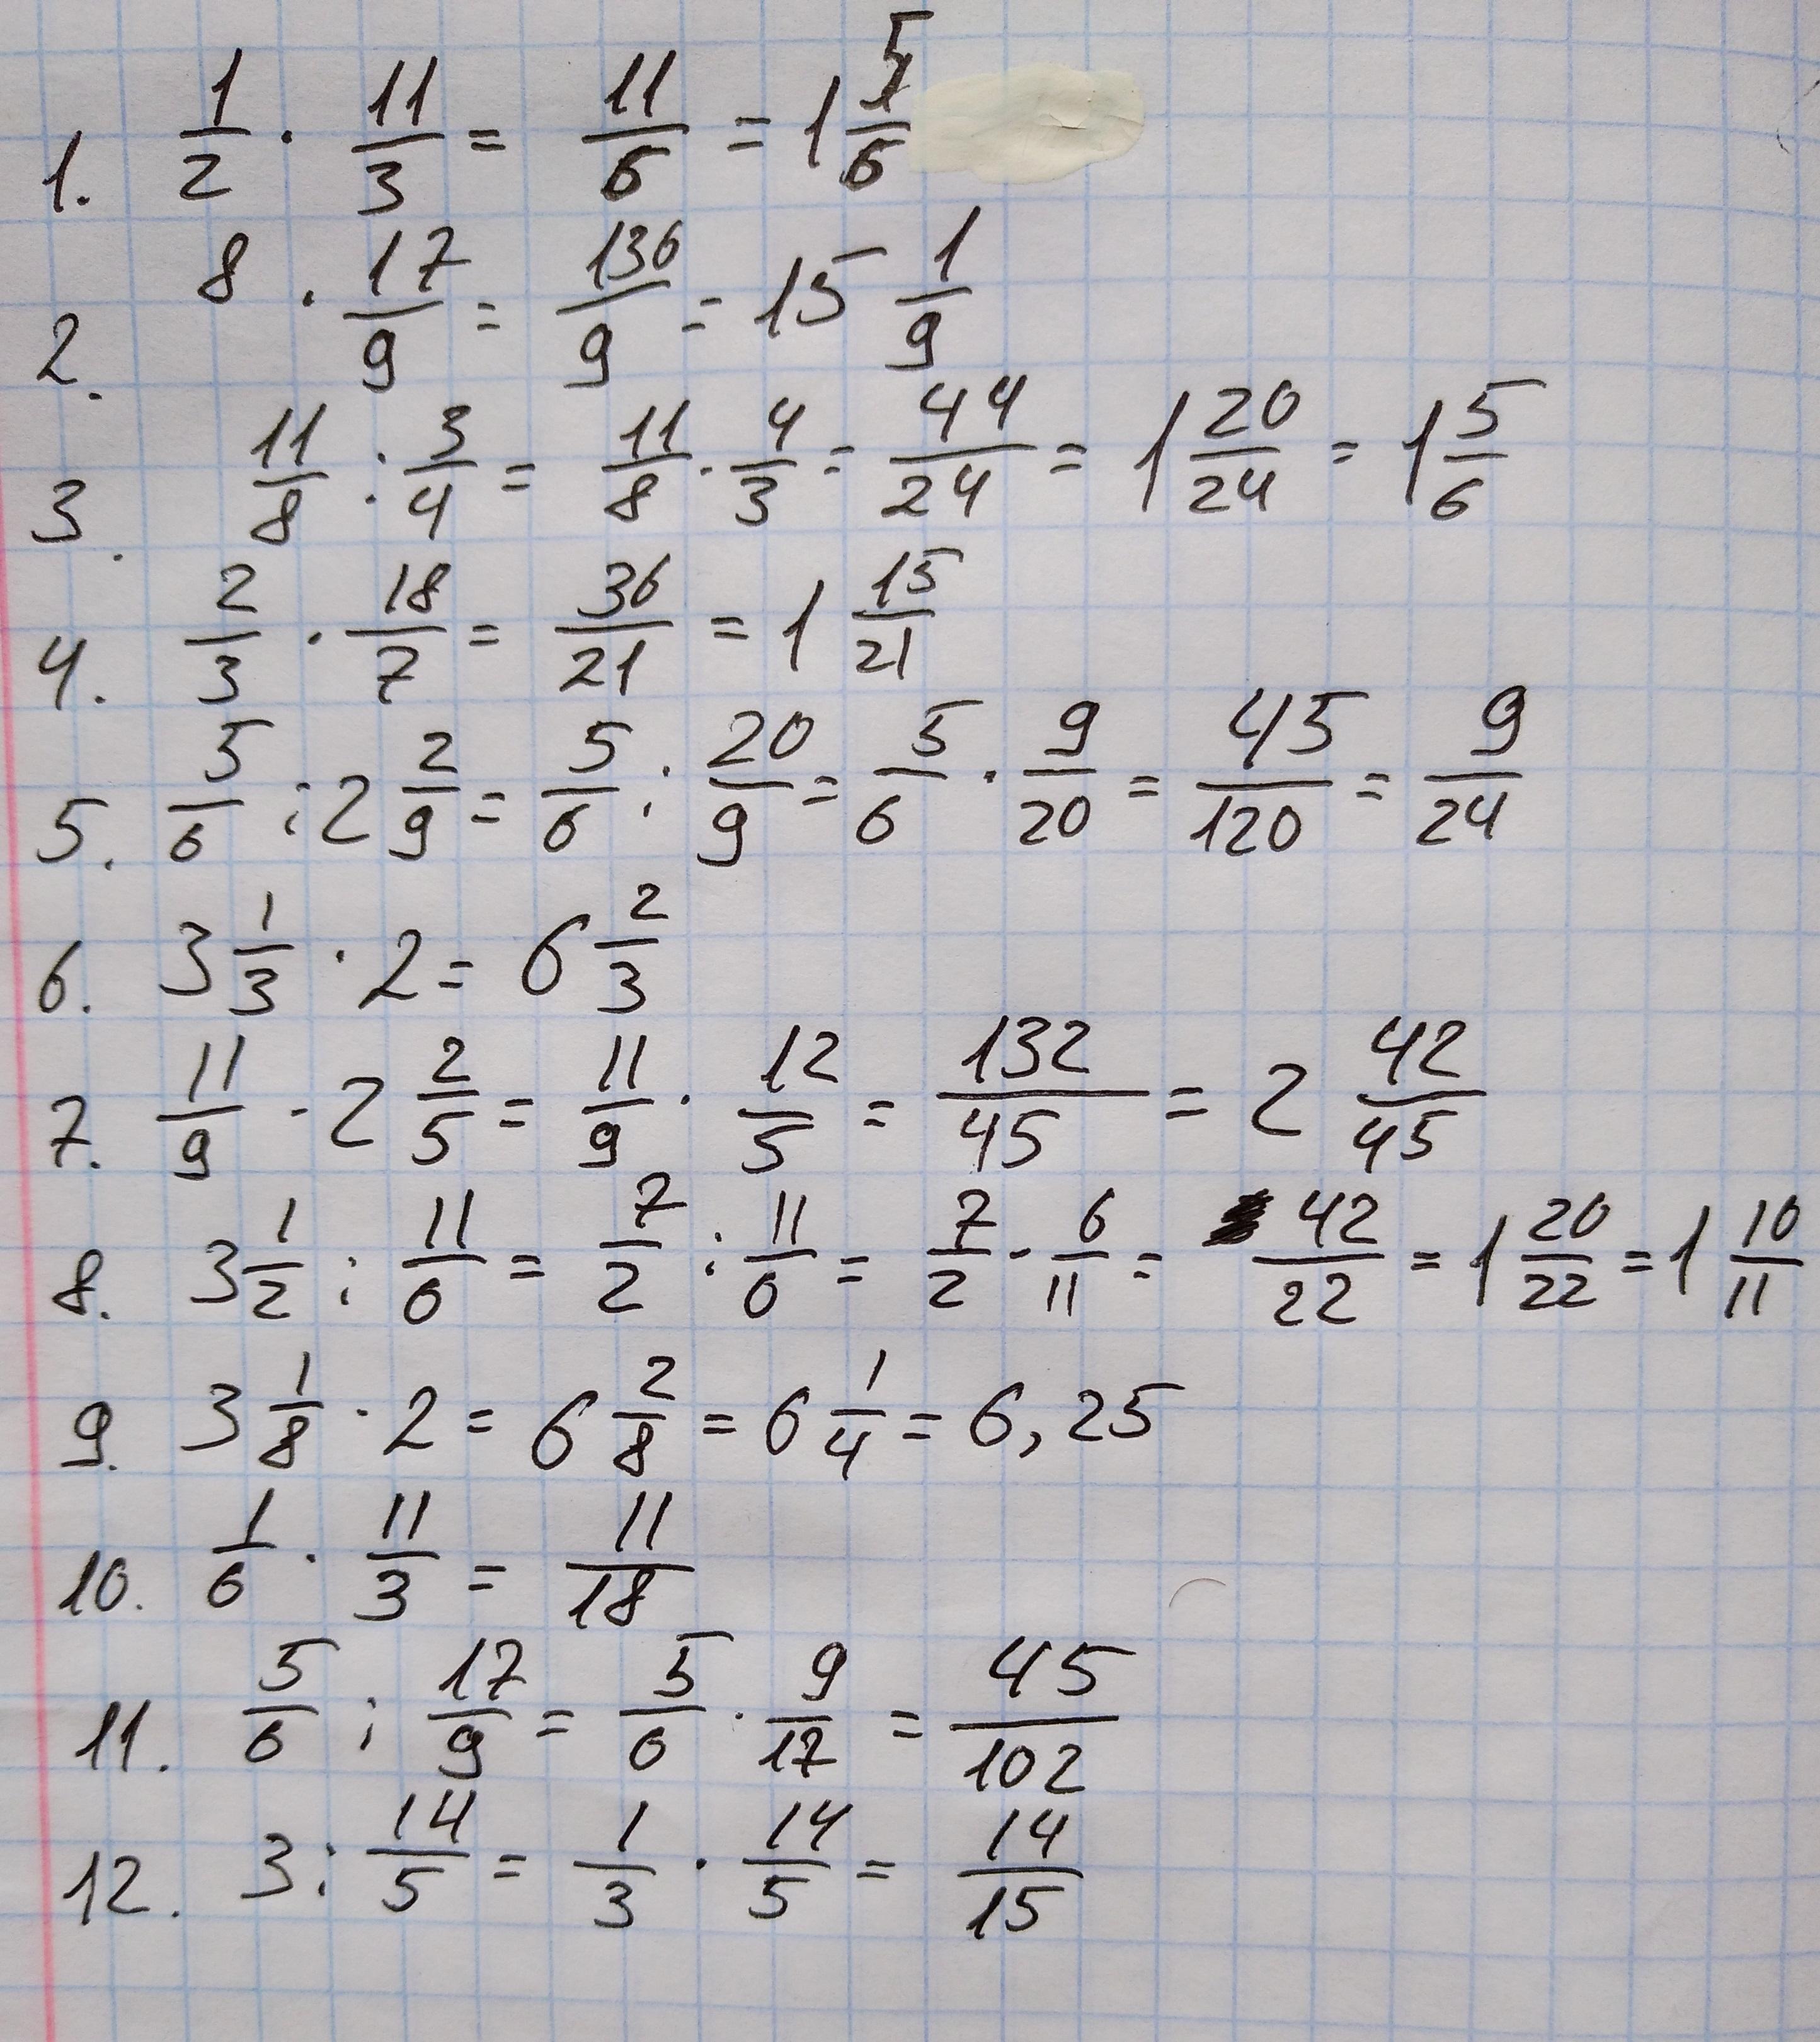 1. 1/2 · 11/3 = 11/6 = 1 5/6
2. 8 · 17/9 = 136/9 = 15 1/9
3. 11/8 : 3/4 = 11/8 · 4/3 = 44/24 = 1 20/24 = 1 5/6
4. 2/3 · 18/7 = 36/21 = 1 15/21
5. 5/6 : 2 2/9 = 5/6 : 20/9 = 5/6 · 9/20 = 45/120 = 9/24
6. 3 1/3 · 2 = 6 2/3
7. 11/9 · 2 2/5 = 11/9 · 12/5 = 132/45 = 2 42/45
8. 3 1/2 : 11/6 = 7/2 : 11/6 = 7/2 · 6/11 = 42/22 = 1 20/22 = 1 10/11
9. 3 1/8 · 2 = 6 2/8 = 6 1/4 = 6,25
10. 1/6 · 11/3 = 11/18
11. 5/6 : 17/9 = 5/6 · 9/17 = 45/102
12. 3 : 14/5 = 1/3 · 14/5 = 14/15